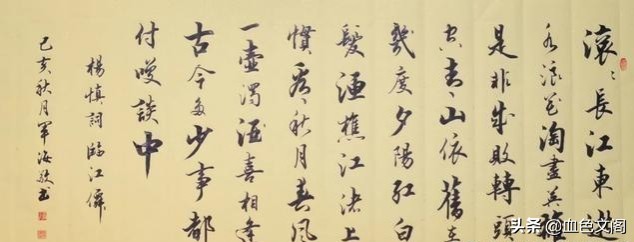 滚〻長江東逝
水浪花淘盡英雄
是非成敗轉頭
空青山依舊在
幾度夕陽紅白
髮漁樵江渚上
慣看秋月春風
一壺濁酒喜相逢
古今多少事都
付咲談中
楊慎詞臨江僊
己亥秋月軍海敬書
头条 @血色文阁